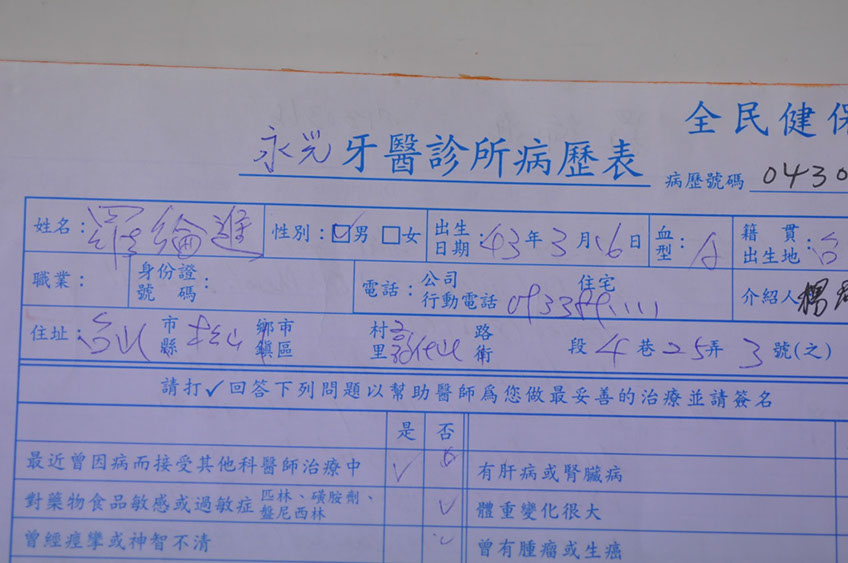 全民健保
永光牙醫診所病歷表
病歷號碼 0430
姓名： 性別：☑男 □女 出生日期：43年3月16日 血型：A 籍貫出生地：台
職業： 身份證號碼： 電話：公司 住宅 行動電話 介紹人 楊
住址：台北市縣 松山鄉市鎮區 村里 路街 段 4巷25弄3號(之)
請打✓回答下列問題以幫助醫師為您做最妥善的治療並請簽名
是 否
最近曾因病而接受其他科醫師治療中 ✓ 有肝病或腎臟病
對藥物食品敏感或過敏症 匹林、磺胺劑、盤尼西林 ✓ 體重變化很大
曾經痙攣或神智不清 ✓ 曾有腫瘤或生癌